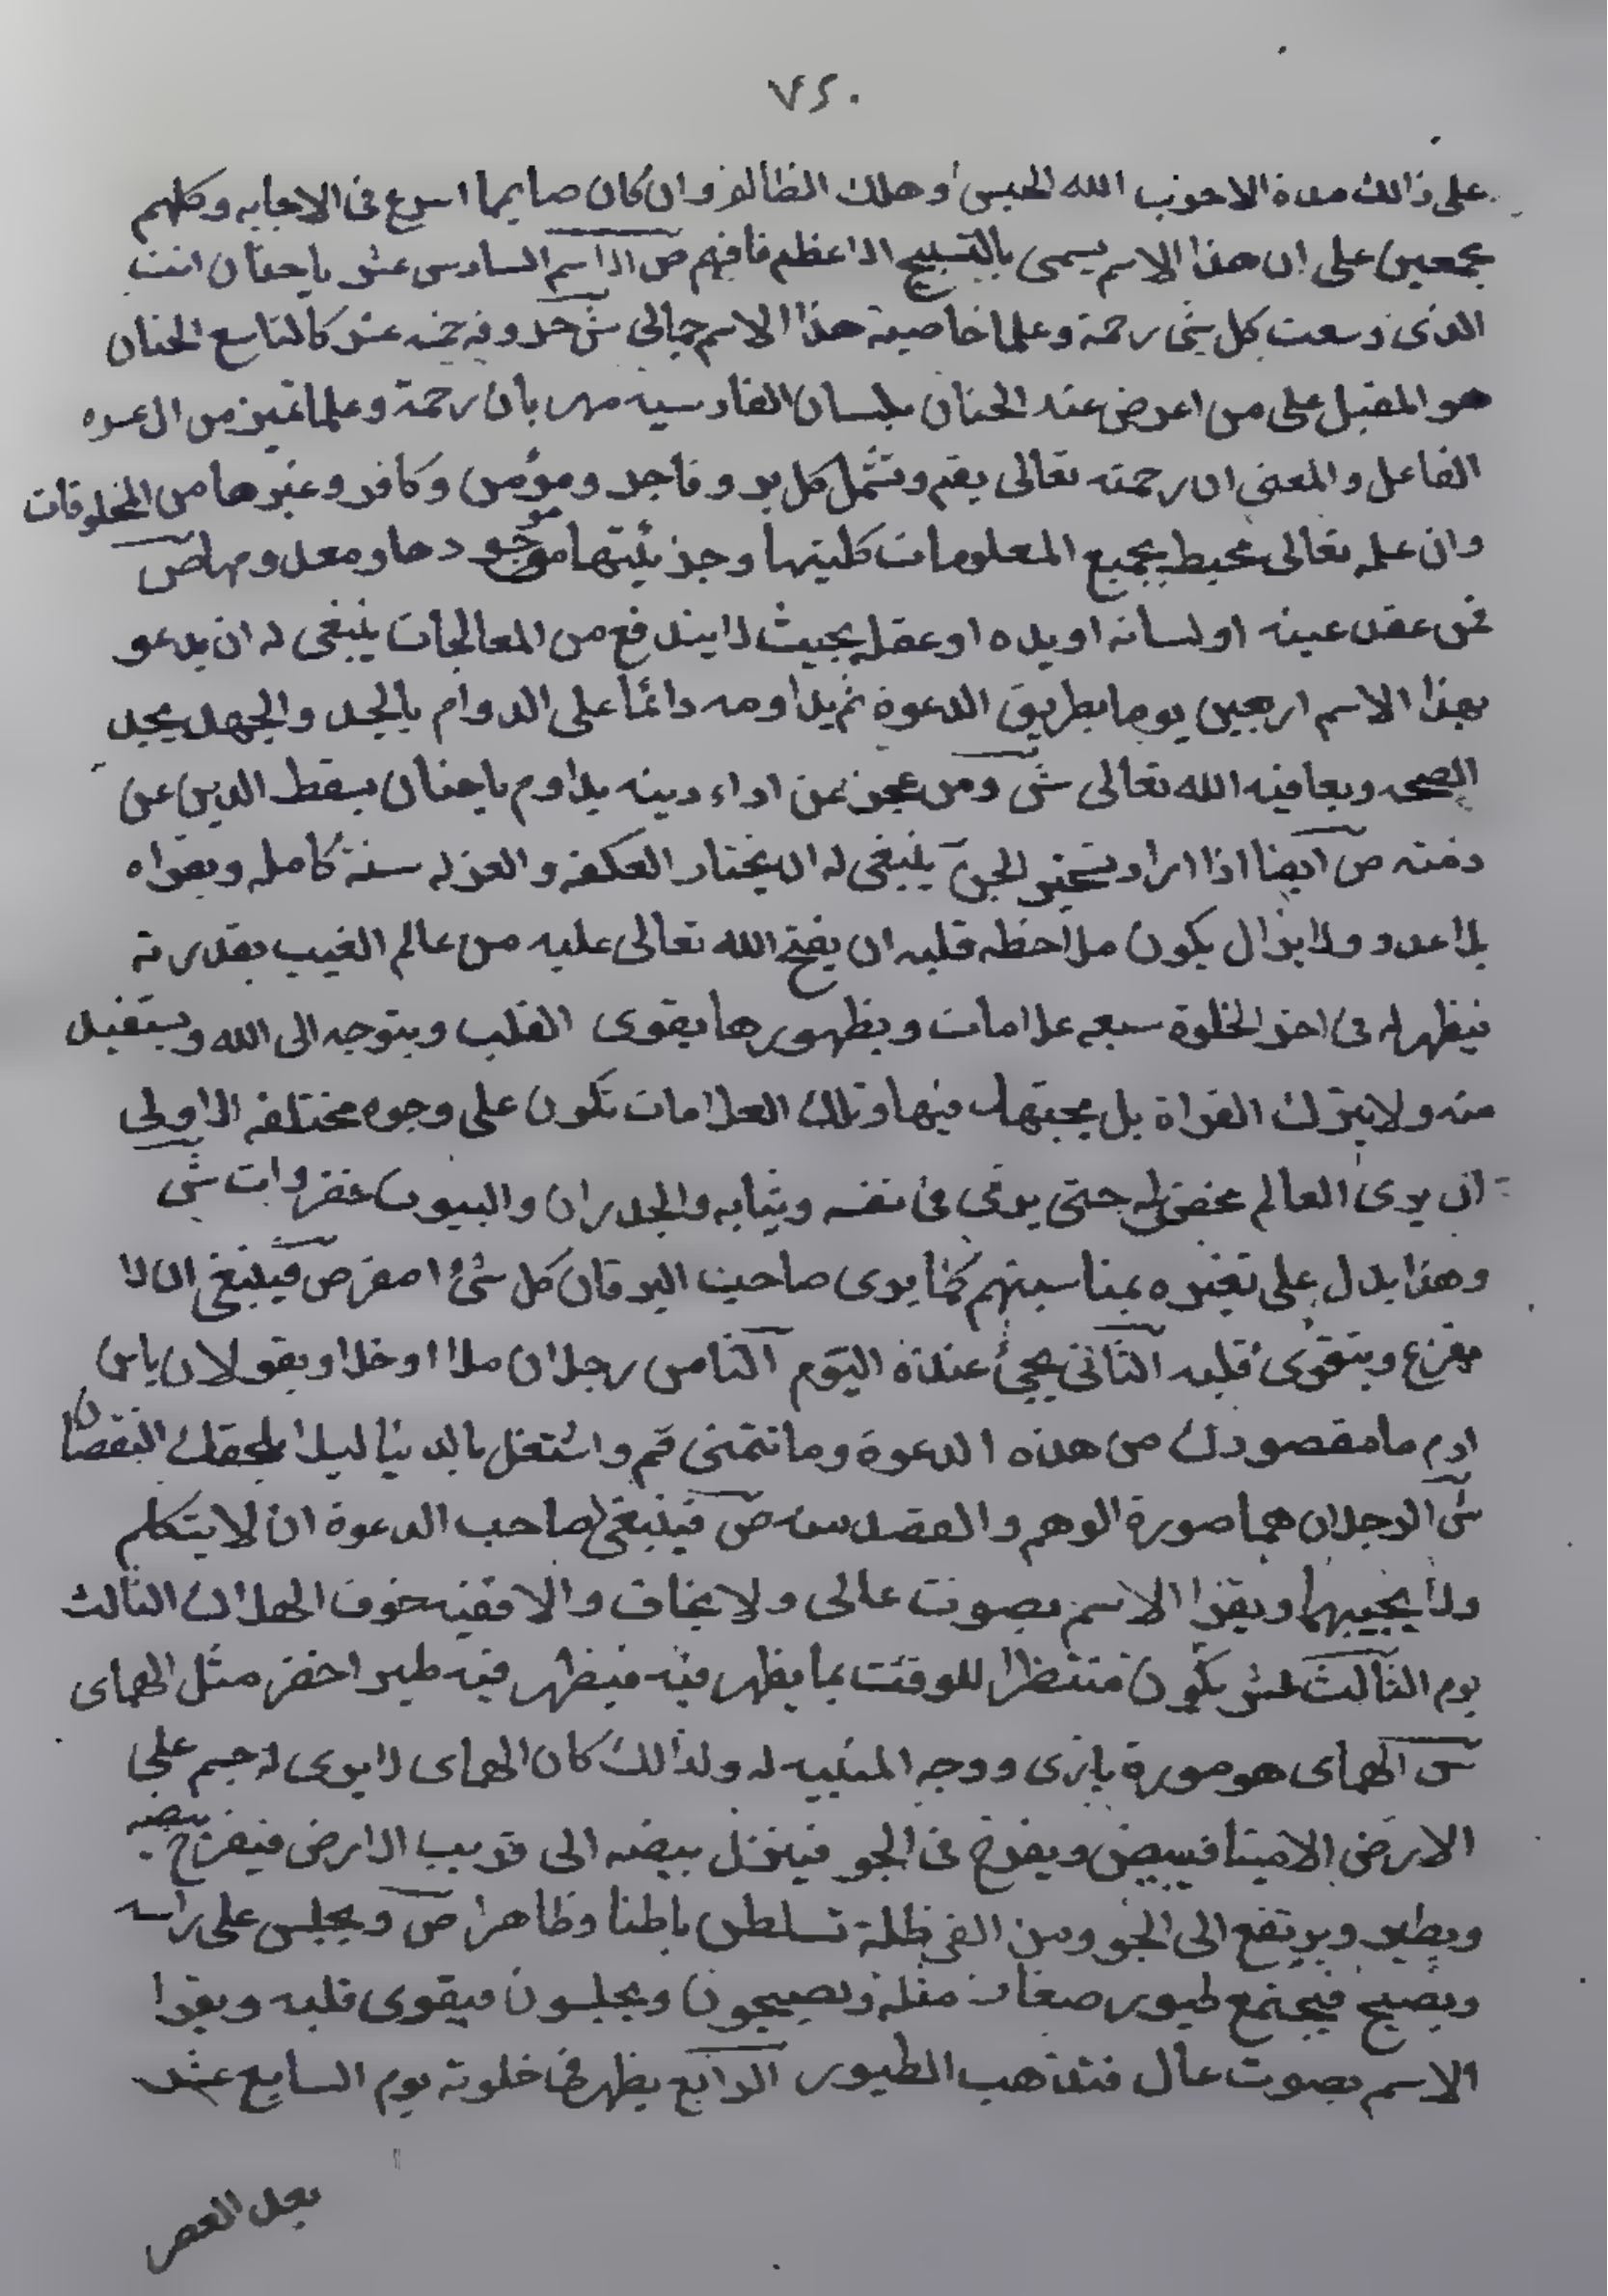 ٧٢٠
على ذالك مدة الاحزب الله الحبس او هلك الظالم وان كان صايما اسرع فى الاجابه وكلهم
مجمعين على ان هذا الاسم يسمى بالتسبيح الاعظم فافهم ص الاسم السادس عشر ياحنان انت
الذى وسعت كل شى رحمة وعلما خاصية هذا الاسم جمالى ش حروفه خمسه عشر كالتاسع الحنان
هو المقبل على من اعرض عند الحنان بلسان الفارسيه مهربان رحمة وعلما تميز من
الفاعل والمعنى ان رحمته تعالى يعم وتشمل كل بر وفاجر ومؤمن وكافر وغيرها من المخلوقات
وان علمه تعالى محيط بجميع المعلومات كليتها وجزئيتها موجودها ومعدومها ص
فمن عقد عينه او لسانه او يده او عقله بحيث لا يندفع من المعالجات ينبغى له ان يدعو
بهذا الاسم اربعين يوما بطريق الدعوة ثم يداومه دائما على الدوام بالجد والجهد يجد
الصحه ويعافيه الله تعالى ش ومن عجز عن اداء دينه يداوم ياحنان يسقط الدين عن
ذمته ص ايضا اذا اراد تسخير الجن ينبغى له ان يختار العكفه والعزله سنة كامله ويقراه
بلا عدد ولا يزال يكون ملاحظه قلبه ان يفتح الله تعالى عليه من عالم الغيب بقدرته
فيظهر له فى اخر الخلوة سبعه علامات وبظهورها يقوى القلب ويتوجه الى الله ويستفيد
منه ولا يترك القراة بل يجتهد فيها وتلك العلامات تكون على وجوه مختلفه الاولى
ان يرى العالم مخضر له حتى يرى فى نفسه وثيابه والجدران والبيوت خضروات ش
وهذا يدل على تغيره بمناسبتهم كما يرى صاحب اليرقان كل شئ اصفر ص فينبغى ان لا
يفزع ويتقوى قلبه الثانى يجئ عنده اليوم الثامن رجلان ملاا وخلا ويقولان يابن
ادم ما مقصودك من هذه الدعوة وما تتمنى قم واشتغل بالدنيا ليلا يلحقك النقصان
ش الرجلان هما صورة الوهم والقصد منه ص فينبغى لصاحب الدعوة ان لا يتكلم
ولا يجيبهما ويقرا الاسم بصوت عالى ولا يخاف والا ففيه خوف الهلاك الثالث
يوم الثالث عشر يكون منتظرا للوقت بما يظهر فيه فيظهر فيه طير اخضر مثل الهماى
ش الهماى هو صورة بازى ووجه المنبيه له ولذالك كان الهماى لا يرى له جسم على
الارض الا ميتا فيبيض ويفرخ فى الجو فينزل بيضه الى قريب الارض فيفرخ بيضه
ويطير ويرتفع الى الجو ومن الفى ظلة تسلطن باطنا وظاهرا ص ويجلس على راسه
ويصيح فيجتمع طيور صغار مثله ويصيحون ويجلسون فيقوى قلبه ويقرا
الاسم بصوت عال فتذهب الطيور الرابع يظهر فى خلوته يوم السابع عشر
بعد العصر